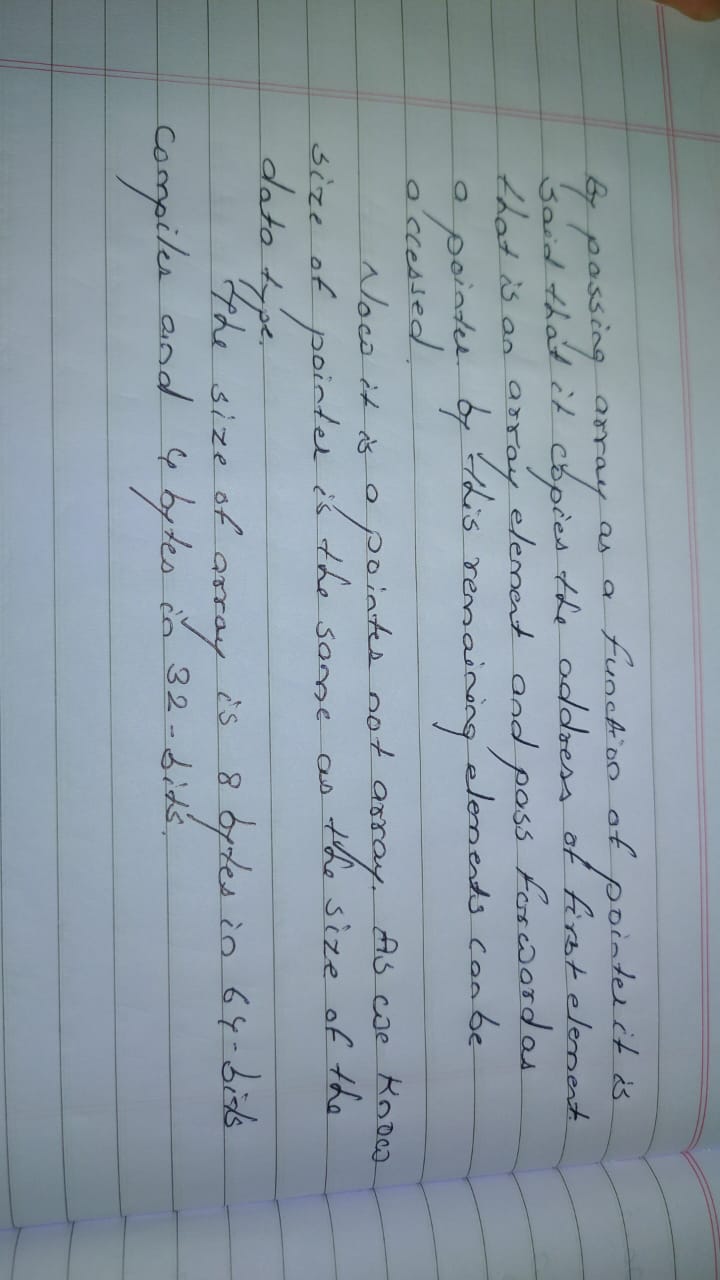 By passing array as a function of pointer it is
said that it copies the address of first element.
that is an array element and pass forword as
a pointer by this remaining elements can be
accessed.
Now it is a pointer not array. As we know
size of pointer is the same as the size of the
data type.
The size of array is 8 bytes in 64-bits
compiler and 4 bytes in 32-bits.